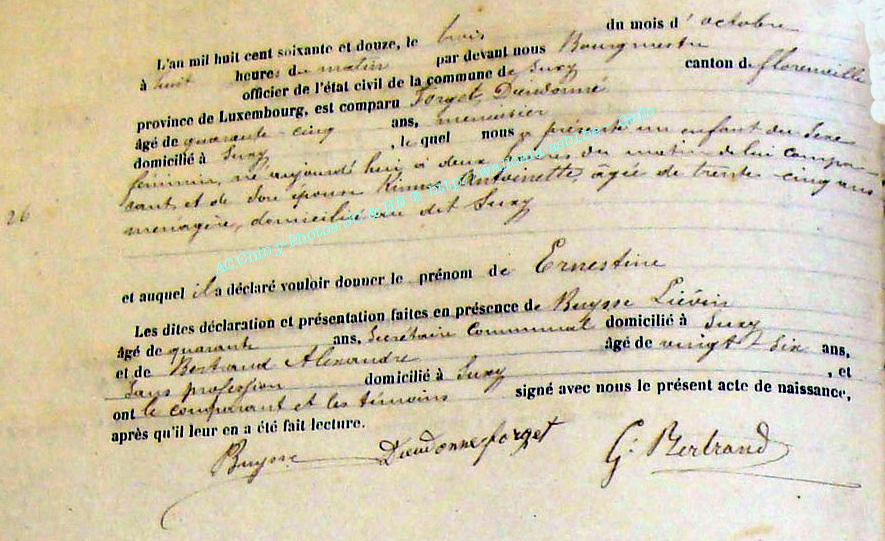 L'an mil huit cent soixante et douze, le trois du mois d'octobre
à huit heures du matin par devant nous Bourgmestre
officier de l'état civil de la commune de Suxy canton de florenville
province de Luxembourg, est comparu Forget, Dieudonné
âgé de quarante-cinq ans, menuisier
domicilié à Suxy, le quel nous a présenté un enfant du sexe
féminin, né aujourd'hui à deux heures du matin de lui compa-
rant et de son épouse Antoinette, âgée de trente-cinq ans
menagère, domiciliée au dit Suxy
26
et auquel il a déclaré vouloir donner le prénom de Ernestine
Les dites déclaration et présentation faites en présence de Buysse Liévin
âgé de quarante ans, Secrétaire Communal domicilié à Suxy
et de Bertrand Alexandre âgé de vingt-six ans,
Sans profession domicilié à Suxy, et
ont le comparant et les témoins signé avec nous le présent acte de naissance,
après qu'il leur en a été fait lecture.
Buysse Dieudonné forget G. Bertrand